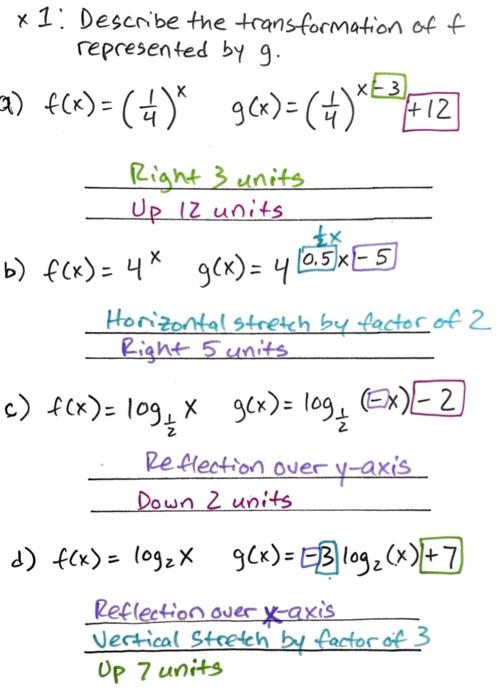 x 1: Describe the transformation of f
represented by g.
a) f(x) = (1/4)^x g(x) = (1/4)^(x-3) +12
Right 3 units
Up 12 units
½x
b) f(x) = 4^x g(x) = 4^(0.5x-5)
Horizontal stretch by factor of 2
Right 5 units
c) f(x) = log_(1/2) x g(x) = log_(1/2) (-x) - 2
Reflection over y-axis
Down 2 units
d) f(x) = log₂x g(x) = -3 log₂(x) +7
Reflection over x-axis
Vertical stretch by factor of 3
Up 7 units